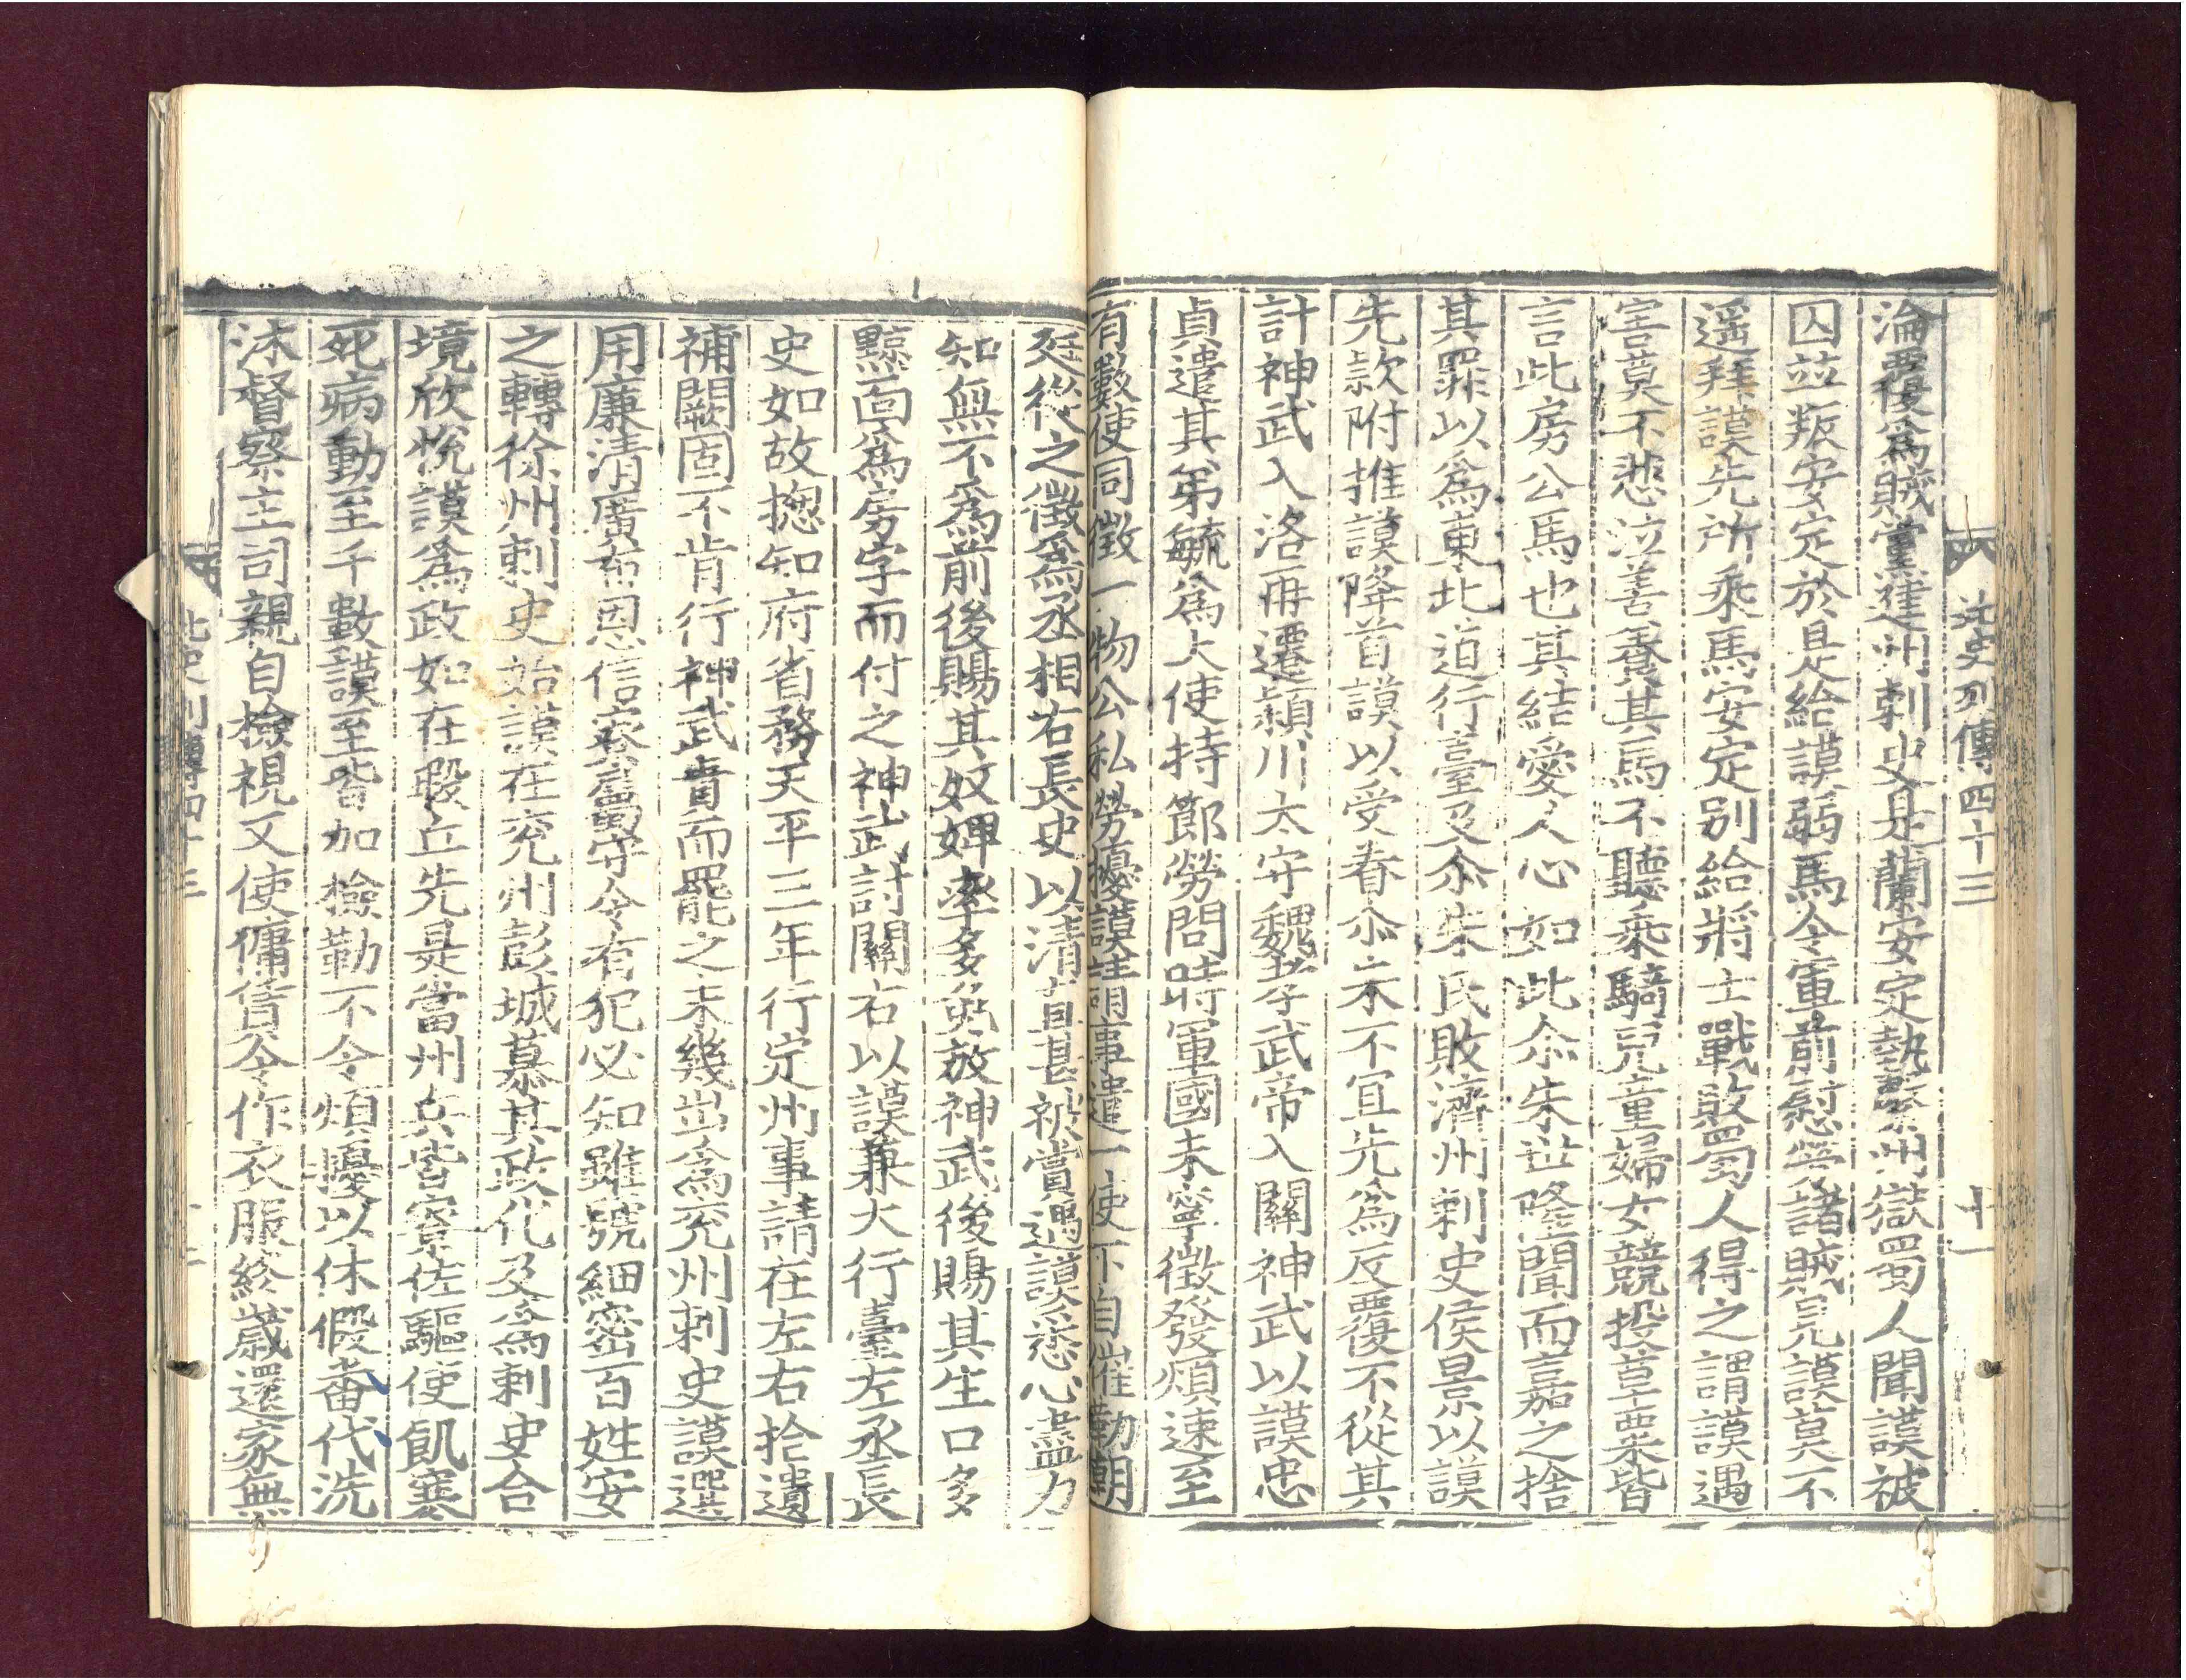 北史列傳四十三 十一
淪覆爲賊黨建州刺史是蘭安定執繫州獄蜀人聞謨被
囚並叛安定於是給謨弱馬令軍前慰勞諸賊見謨莫不
遥拜謨先所乘馬安定别給將士戰敗蜀人得之謂謨遇
害莫不悲泣善養其馬不聽乘騎兒童婦女競投草粟皆
言此房公馬也其結愛人心如此尒朱世隆聞而嘉之捨
其罪以爲東北道行臺及尒朱氏敗濟州刺史侯景以謨
先款附推謨降首謨以受眷尒朱不宜先爲反覆不從其
計神武入洛再遷潁川太守魏孝武帝入關神武以謨忠
貞遣其弟毓爲大使持節勞問時軍國未寧徵發煩速至
有數使同徵一物公私勞擾謨請事遣一使下自催勒朝
廷從之徵爲丞相右長史以清直甚被賞遇謨悉心盡力
知無不爲前後賜其奴婢率多免放神武後賜其生口多
黥面爲房字而付之神武討關右以謨兼大行臺左丞長
史如故摠知府省務天平三年行定州事請在左右拾遺
補闕固不肯行神武責而罷之未幾出爲兖州刺史謨選
用廉清廣布恩信寮屬守令有犯必知雖號細密百姓安
之轉徐州刺史始謨在兖州彭城慕其政化及爲刺史合
境欣悅謨爲政如在瑕丘先是當州兵皆寮佐驅使飢寒
死病動至千數謨至皆加檢勒不令煩擾以休假番代洗
沐督察主司親自檢視又使傭賃令作衣服終歲還家無
北史列傳四十三